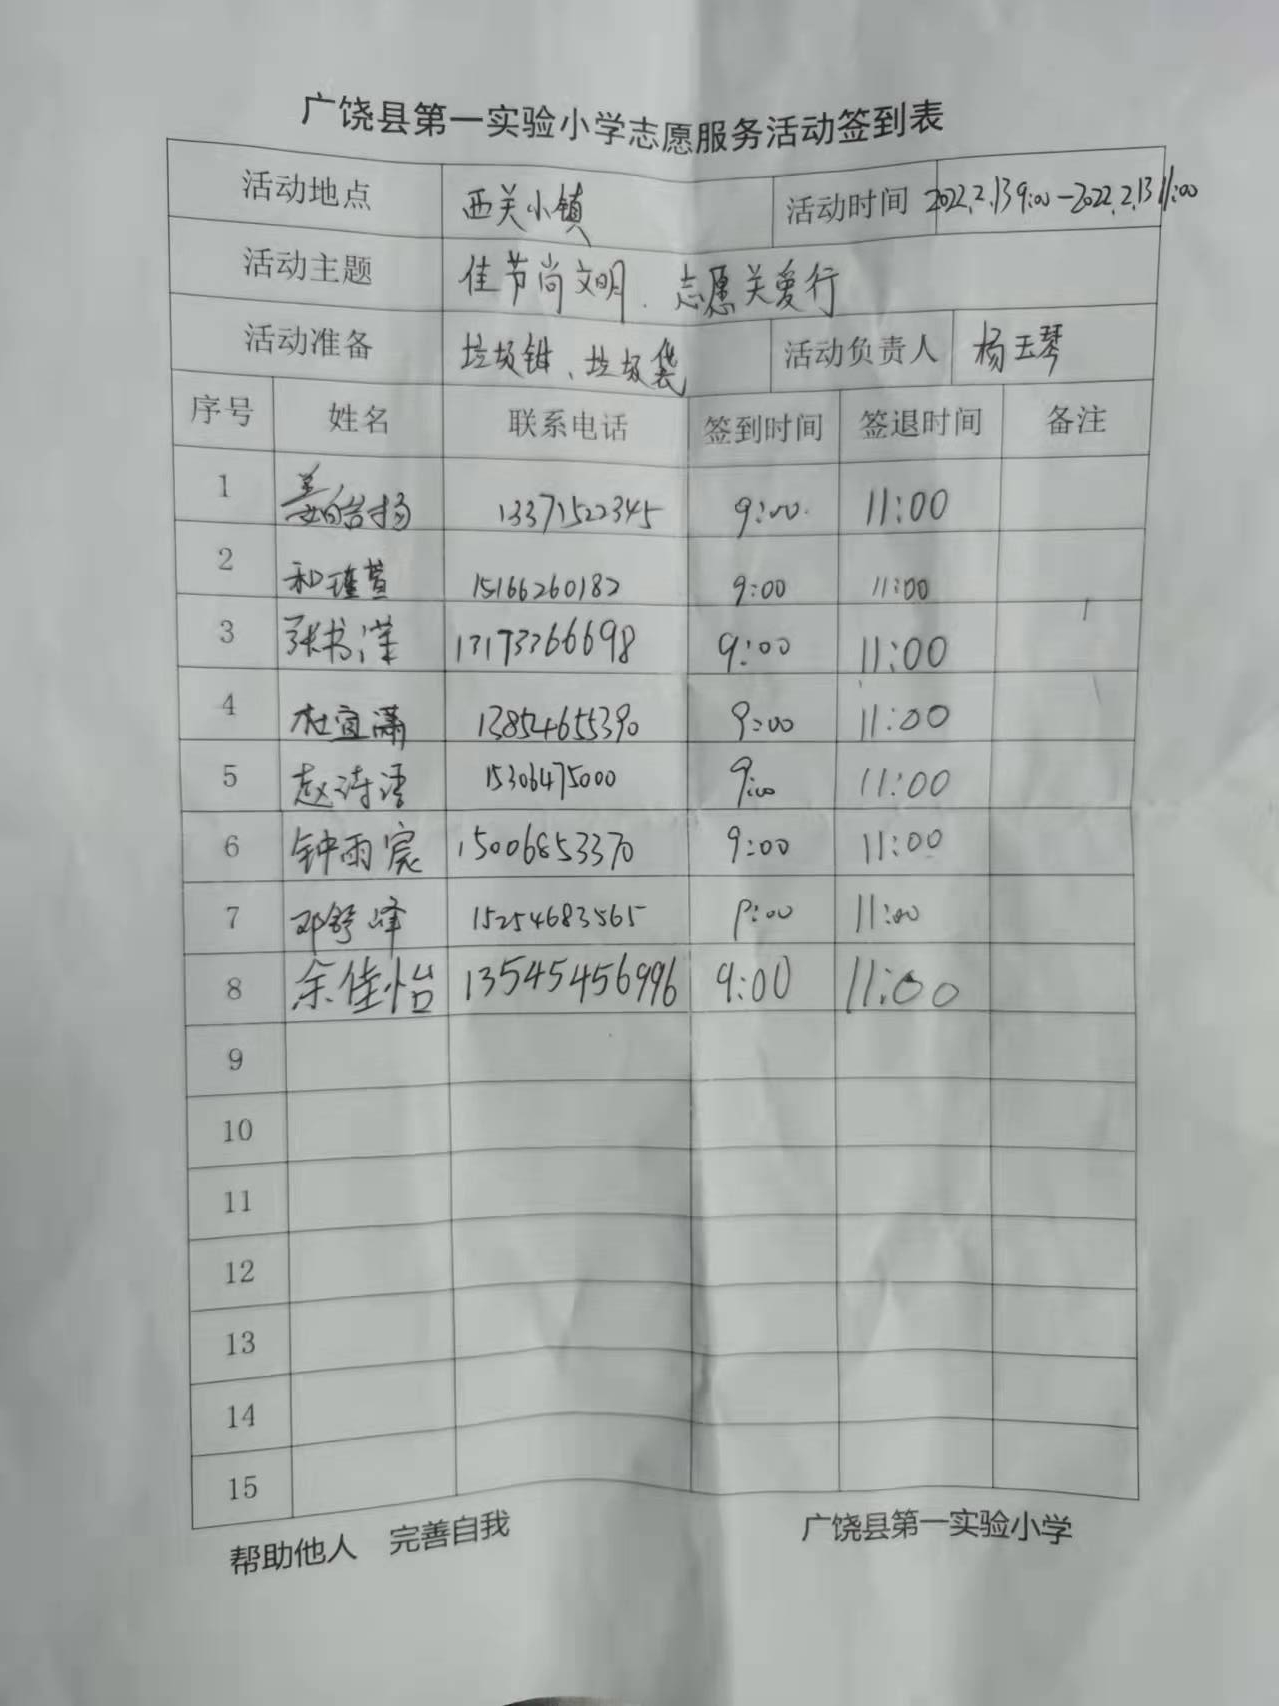 广饶县第一实验小学志愿服务活动签到表
活动地点 西关小镇 活动时间 2022.2.13 9:00-2022.2.13 11:00
活动主题 佳节尚文明、志愿关爱行
活动准备 垃圾钳、垃圾袋 活动负责人 杨玉琴
序号 姓名 联系电话 签到时间 签退时间 备注
1 姜皓扬 13371522345 9:00 11:00
2 和瑾萱 15166260182 9:00 11:00
3 张书潆 13173366698 9:00 11:00
4 杜宜潇 13854655390 9:00 11:00
5 赵诗语 15306475000 9:00 11:00
6 钟雨宸 15006853370 9:00 11:00
7 邓舒峰 15254683565 9:00 11:00
8 余佳怡 13545456996 9:00 11:00
9
10
11
12
13
14
15
帮助他人 完善自我 广饶县第一实验小学